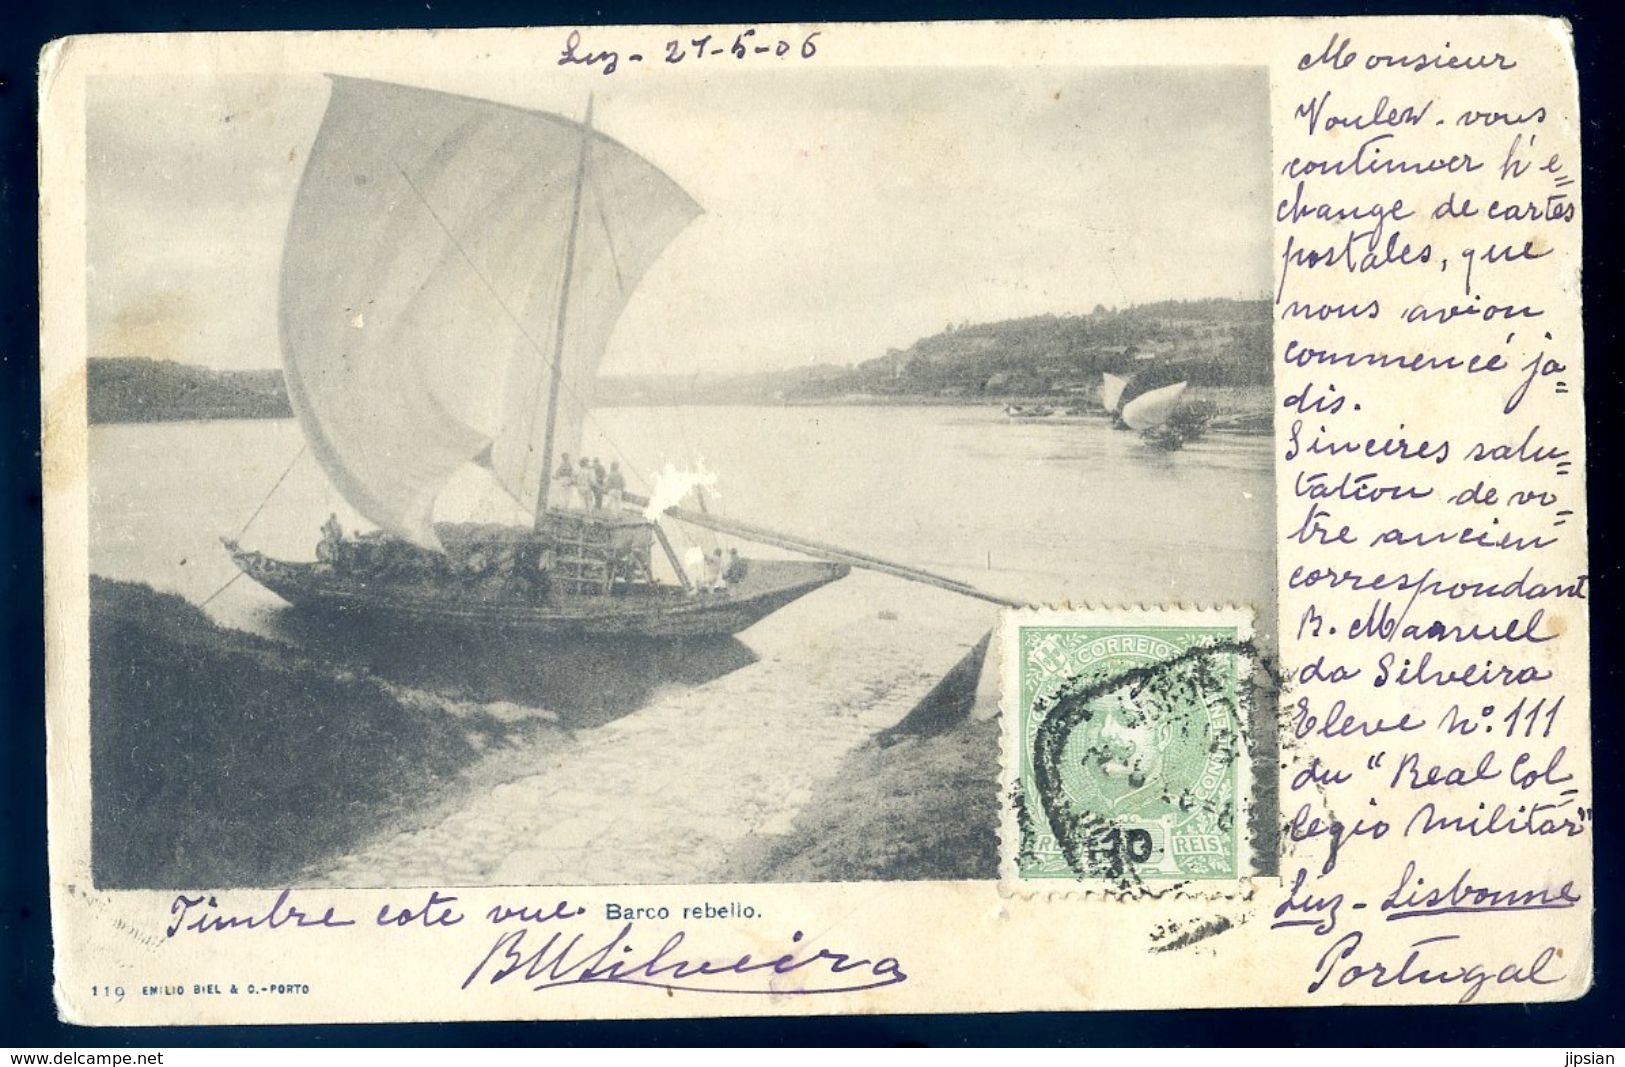 Luz - 27-5-06
Monsieur
Voulez-vous
continuer l'é=
change de cartes
postales, que
nous avion
commencé ja=
dis.
Sincires salu=
tation de vo=
tre ancien
correspondant
B. Manuel
da Silveira
Eleve Nº. 111
du "Real Col=
legio Militar"
Luz - Lisbonne
Portugal
CORREIOS
10
REIS
Timbre cote vue.
Barco rebello.
BMSilveira
119 EMILIO BIEL & C.-PORTO
www.delcampe.net
jipsian